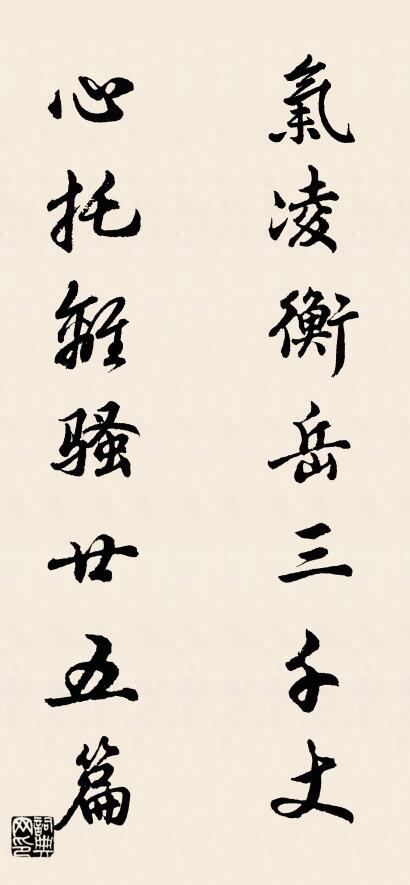 氣凌衡岳三千丈
心托離骚廿五篇
詞典網印